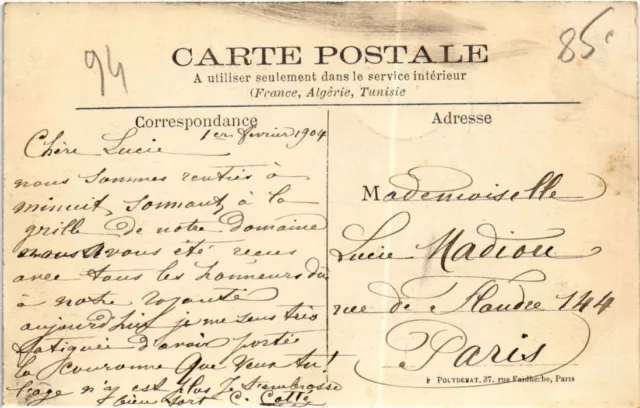 94
85c
CARTE POSTALE
A utiliser seulement dans le service intérieur
(France, Algérie, Tunisie
Correspondance
Adresse
1er février 1904
Chère Lucie
nous sommes rentrés à
minuit, sonnant, à la
grille de notre domaine
nous avons été reçus
avec tous les honneurs dû
à notre royauté
aujourd'hui je me sens très
fatiguée d'avoir porté
la couronne que veux tu!
l'âge n'y est plus Je t'embrasse
bien fort C.
Mademoiselle
Lucie Madiou
rue de Flandre 144
Paris
POLYDEBAT, 37, rue Faidherbe, Paris